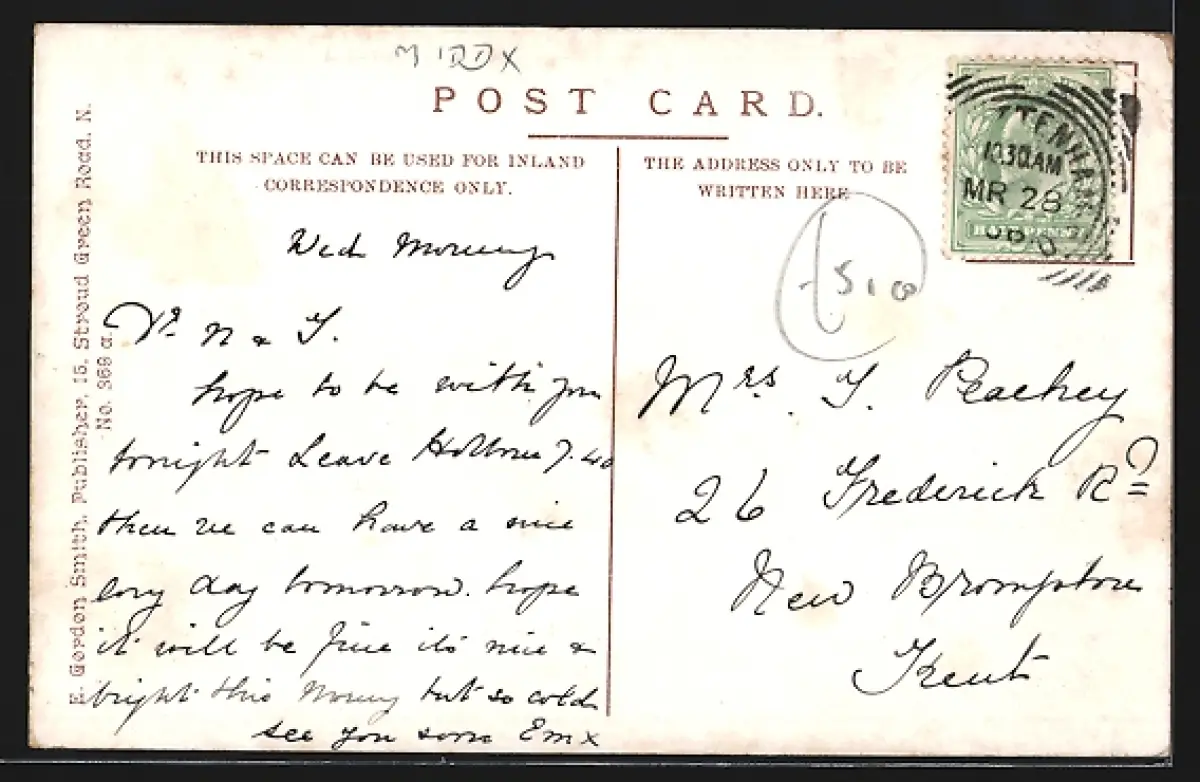 MIDDX
POST CARD.
THIS SPACE CAN BE USED FOR INLAND
CORRESPONDENCE ONLY.
THE ADDRESS ONLY TO BE
WRITTEN HERE
TTENHAM
10.30AM
MR 28
06
HALFPENNY
E. Gordon Smith, Publisher, 15, Stroud Green Road. N.
No. 369 a.
Wed Morning
N & T.
hope to be with you
tonight Leave Holborn 7.40
then we can have a nice
long day tomorrow. hope
it will be fine its nice &
bright this Morning but so cold
see you soon Em x
Mrs. T. Peachey
26 Frederick Rd
New Brompton
Kent